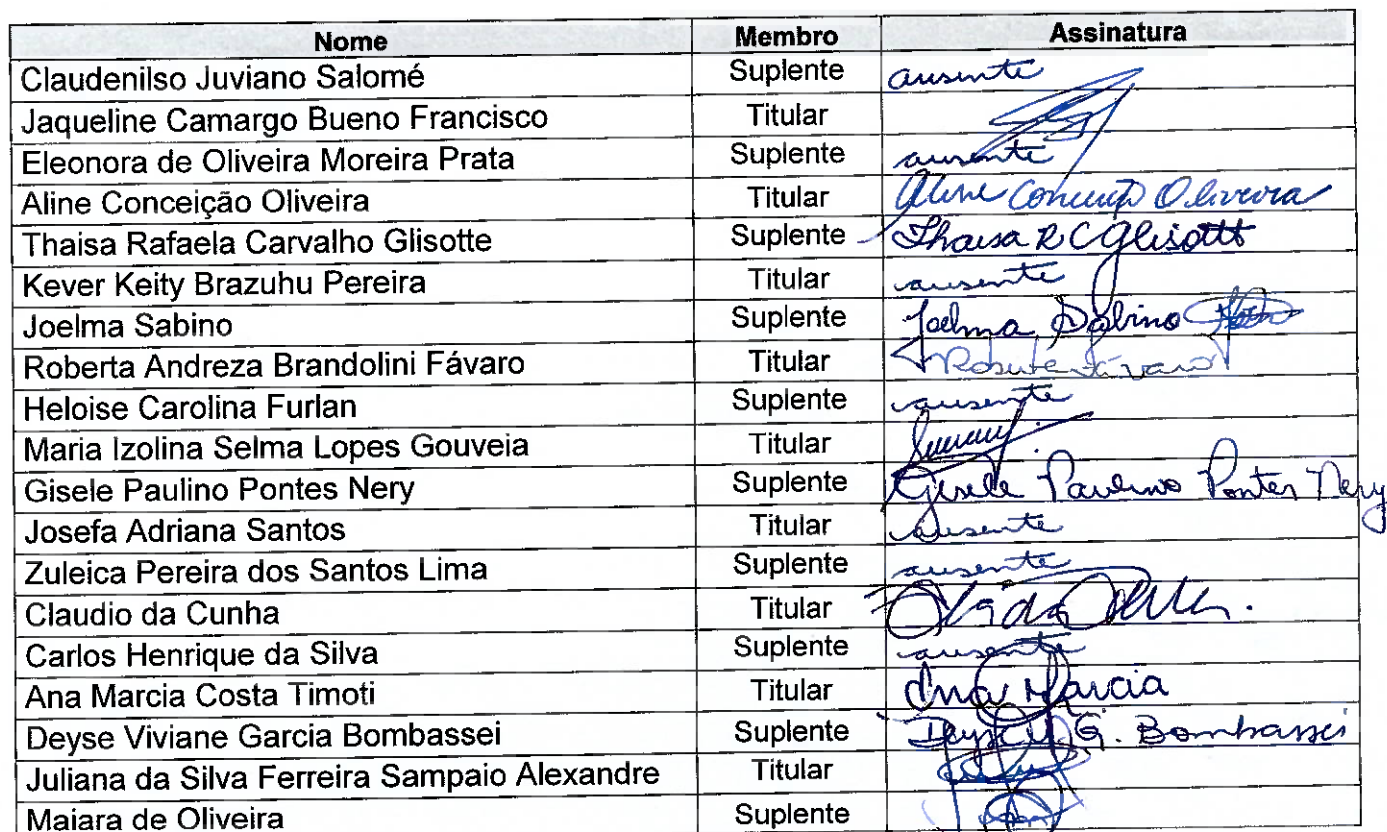 Nome Membro Assinatura
Claudenilso Juviano Salomé Suplente ausente
Jaqueline Camargo Bueno Francisco Titular
Eleonora de Oliveira Moreira Prata Suplente ausente
Aline Conceição Oliveira Titular Aline Conceição Oliveira
Thaisa Rafaela Carvalho Glisotte Suplente Thaisa R C Glisotte
Kever Keity Brazuhu Pereira Titular ausente
Joelma Sabino Suplente Joelma Sabino
Roberta Andreza Brandolini Fávaro Titular Roberta Fávaro
Heloise Carolina Furlan Suplente ausente
Maria Izolina Selma Lopes Gouveia Titular
Gisele Paulino Pontes Nery Suplente Gisele Paulino Pontes Nery
Josefa Adriana Santos Titular ausente
Zuleica Pereira dos Santos Lima Suplente ausente
Claudio da Cunha Titular
Carlos Henrique da Silva Suplente ausente
Ana Marcia Costa Timoti Titular Ana Marcia
Deyse Viviane Garcia Bombassei Suplente Deyse V. G. Bombassei
Juliana da Silva Ferreira Sampaio Alexandre Titular
Maiara de Oliveira Suplente